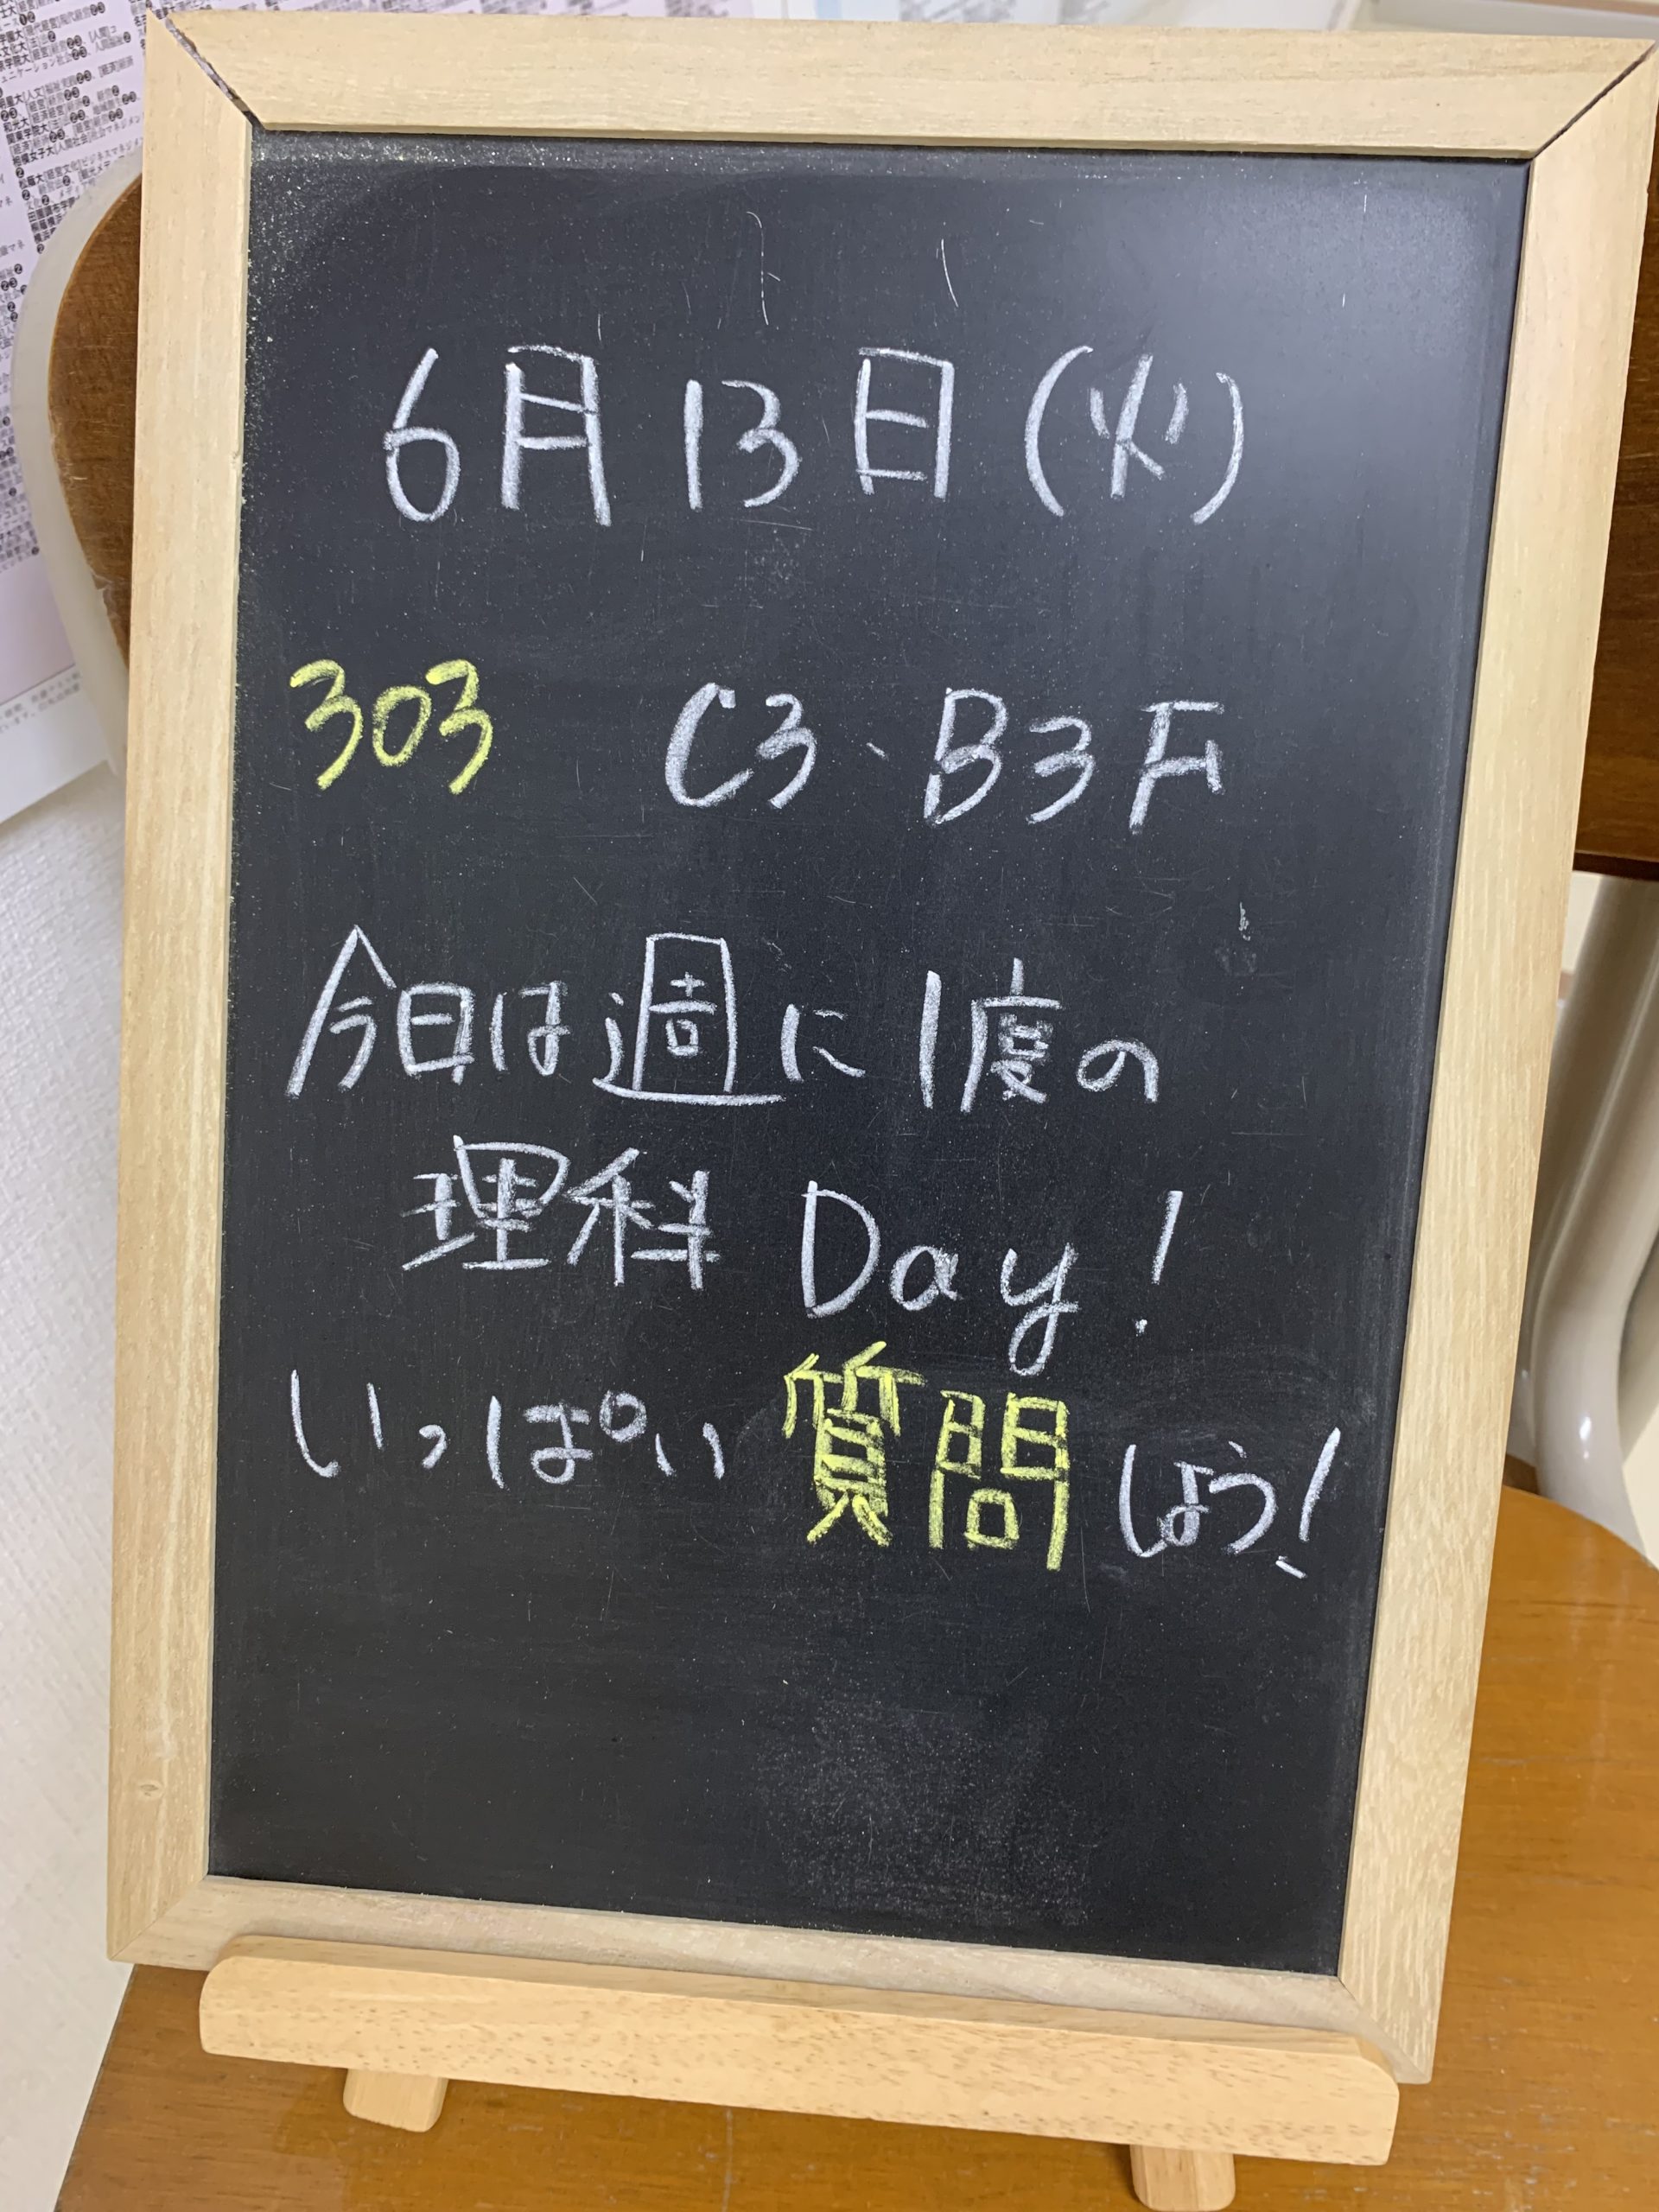 6月13日(火)
303 C3、B3F
今日は週に1度の
理科 Day!
いっぱい質問しよう!